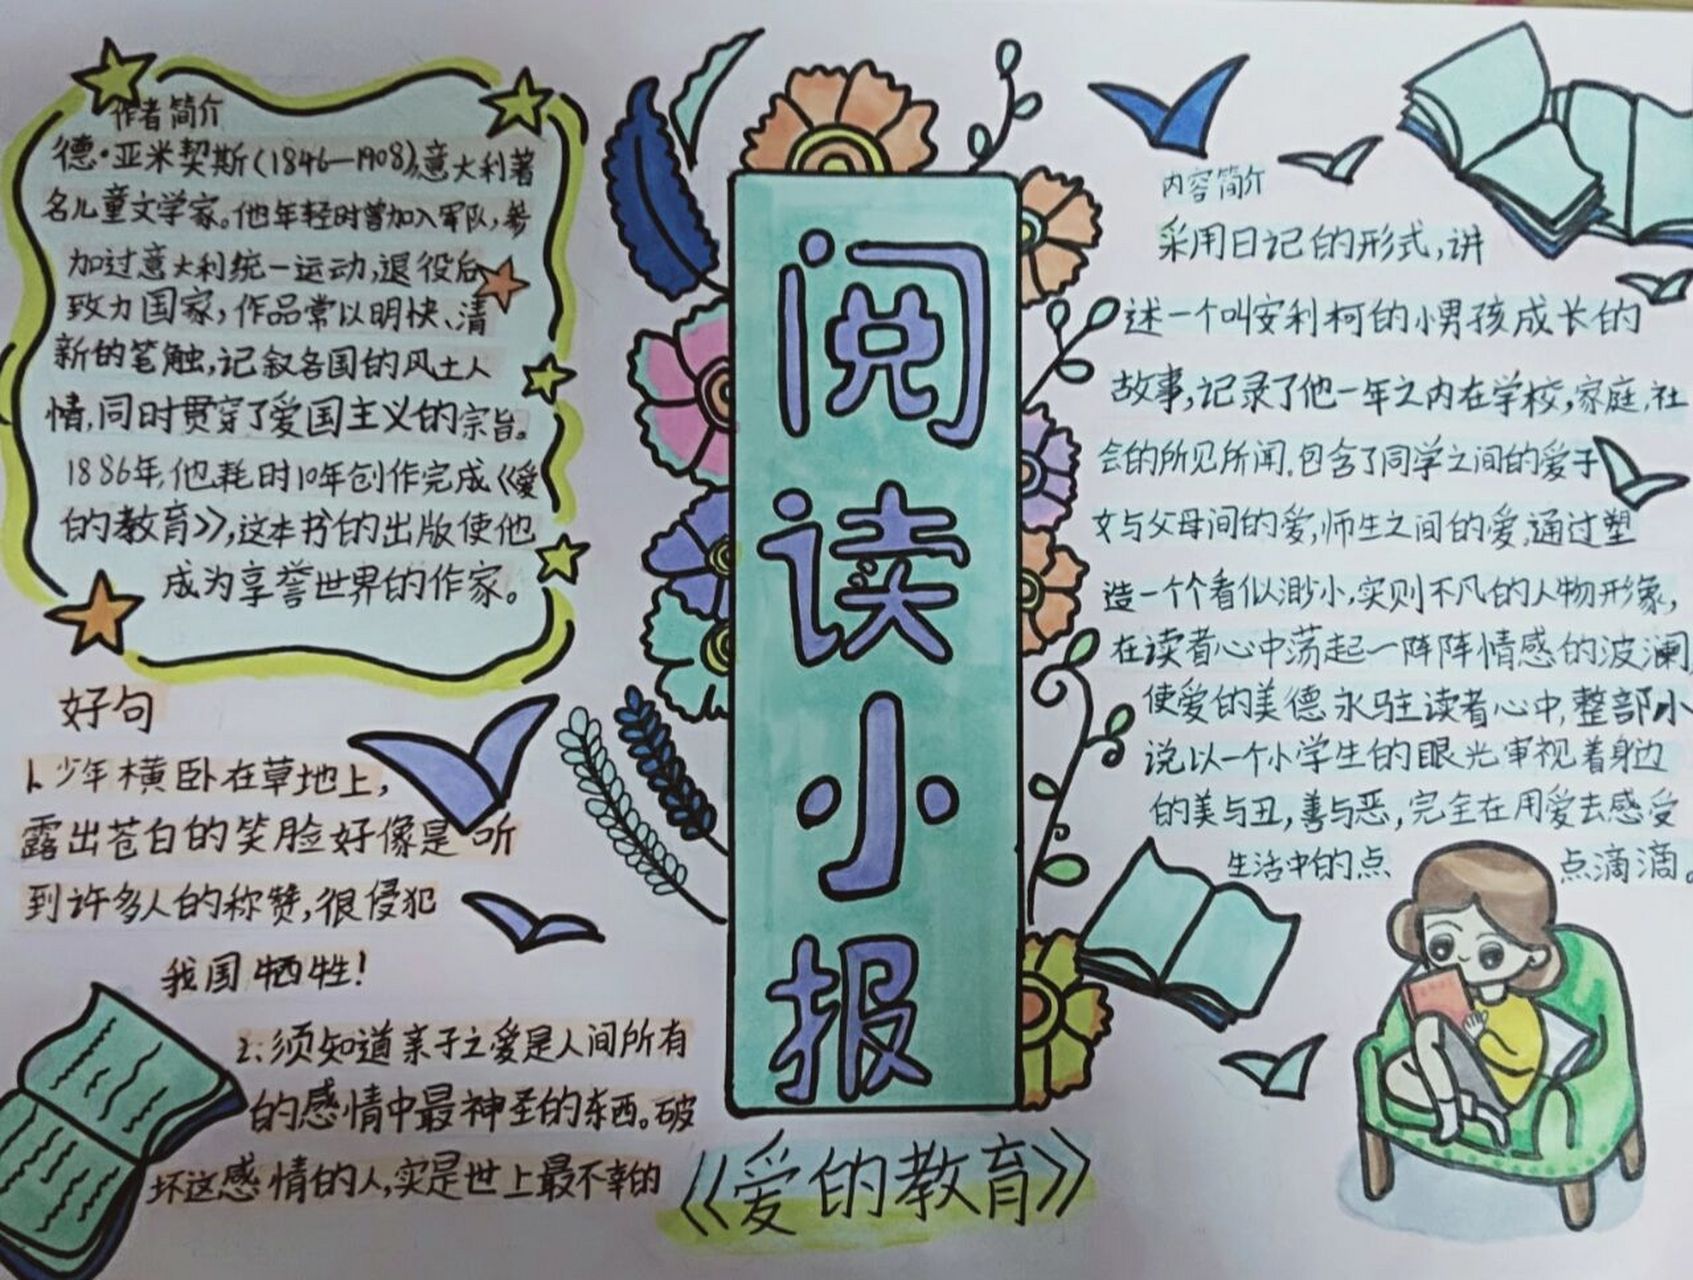 作者简介
德·亚米契斯(1846—1908),意大利著
名儿童文学家。他年轻时曾加入军队,参
加过意大利统一运动,退役后
致力国家,作品常以明快、清
新的笔触,记叙各国的风土人
情,同时贯穿了爱国主义的宗旨。
1886年,他耗时10年创作完成《爱
的教育》,这本书的出版使他
成为享誉世界的作家。
好句
1、少年横卧在草地上,
露出苍白的笑脸好像是听
到许多人的称赞,很侵犯
我国牺牲!
2、须知道亲子之爱是人间所有
的感情中最神圣的东西。破
坏这感情的人,实是世上最不幸的
阅读小报
《爱的教育》
内容简介
采用日记的形式,讲
述一个叫安利柯的小男孩成长的
故事,记录了他一年之内在学校,家庭,社
会的所见所闻,包含了同学之间的爱子
女与父母间的爱,师生之间的爱,通过塑
造一个个看似渺小,实则不凡的人物形象,
在读者心中荡起一阵阵情感的波澜,
使爱的美德永驻读者心中,整部小
说以一个小学生的眼光审视着身边
的美与丑,善与恶,完全在用爱去感受
生活中的点点滴滴。